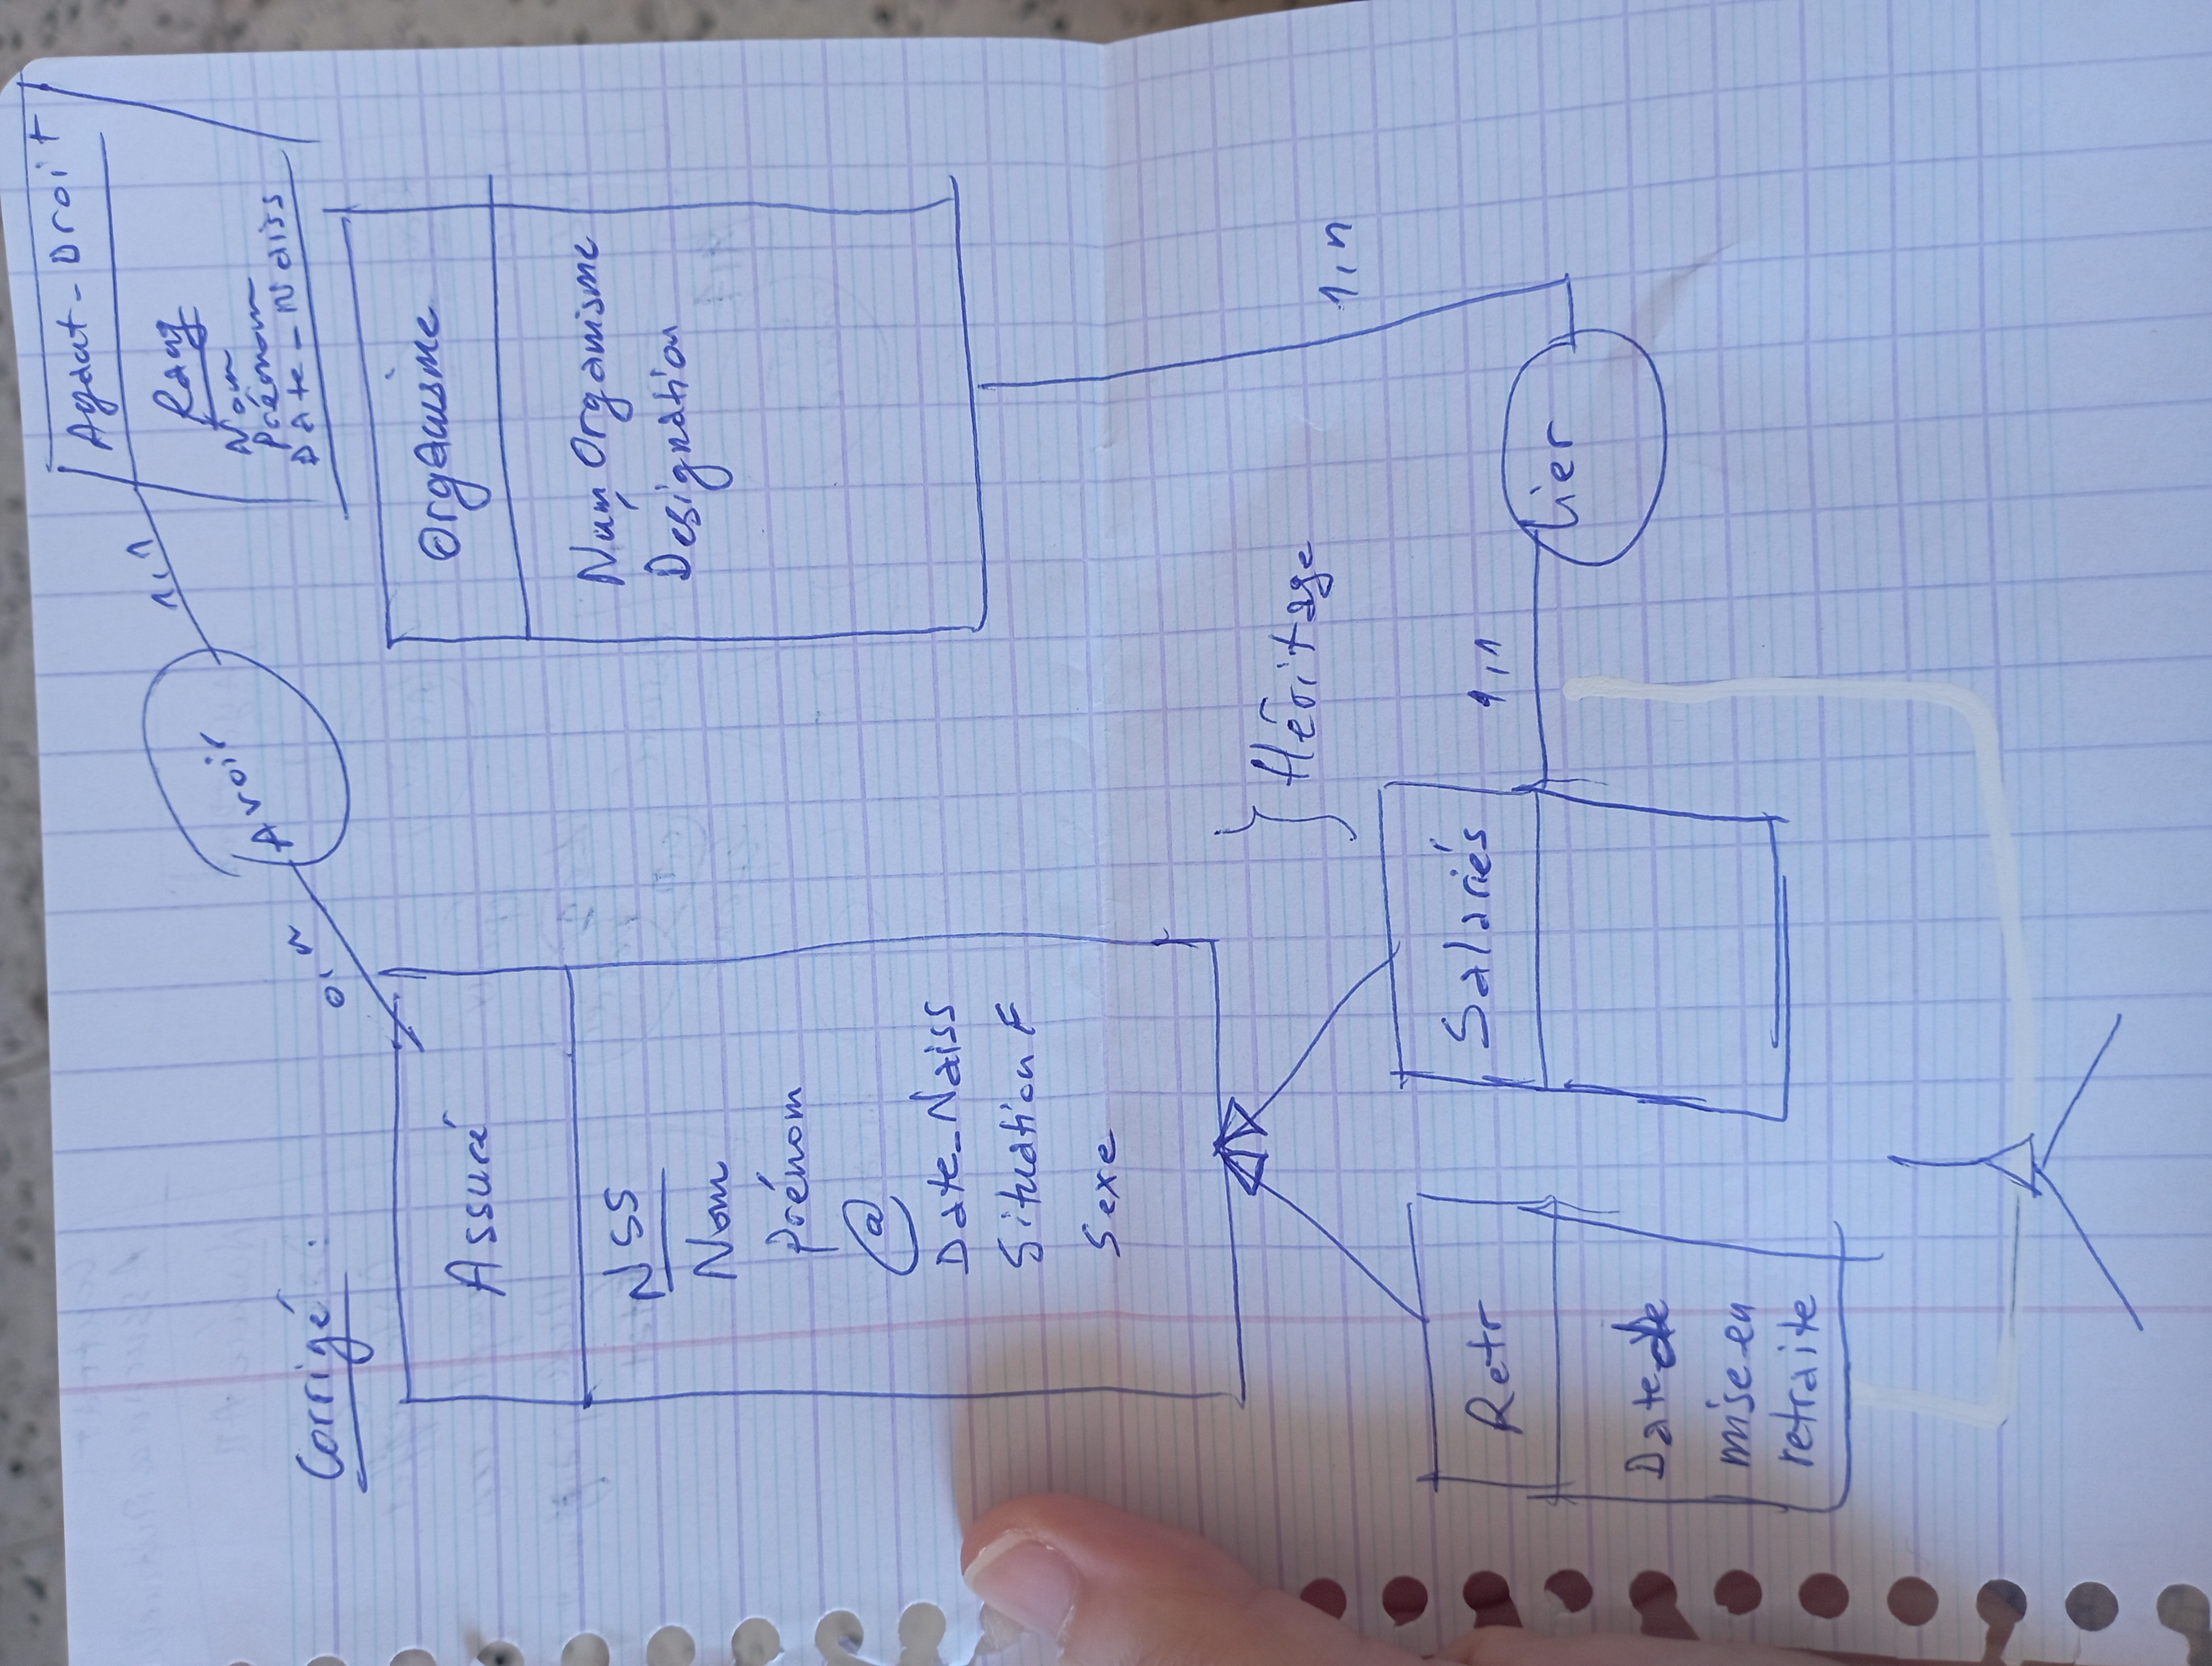 Ayant-Droit
1,1
Rang
Nom
Prénom
Date-Naiss
Avoir
0,n
Corrigé :
Assuré
NSS
Nom
Prénom
@
Date-Naiss
Situation F
Sexe
Organisme
Num Organisme
Désignation
Héritage
1,n
Retr
Date de
mise en
retraite
Salariés
1,1
lier